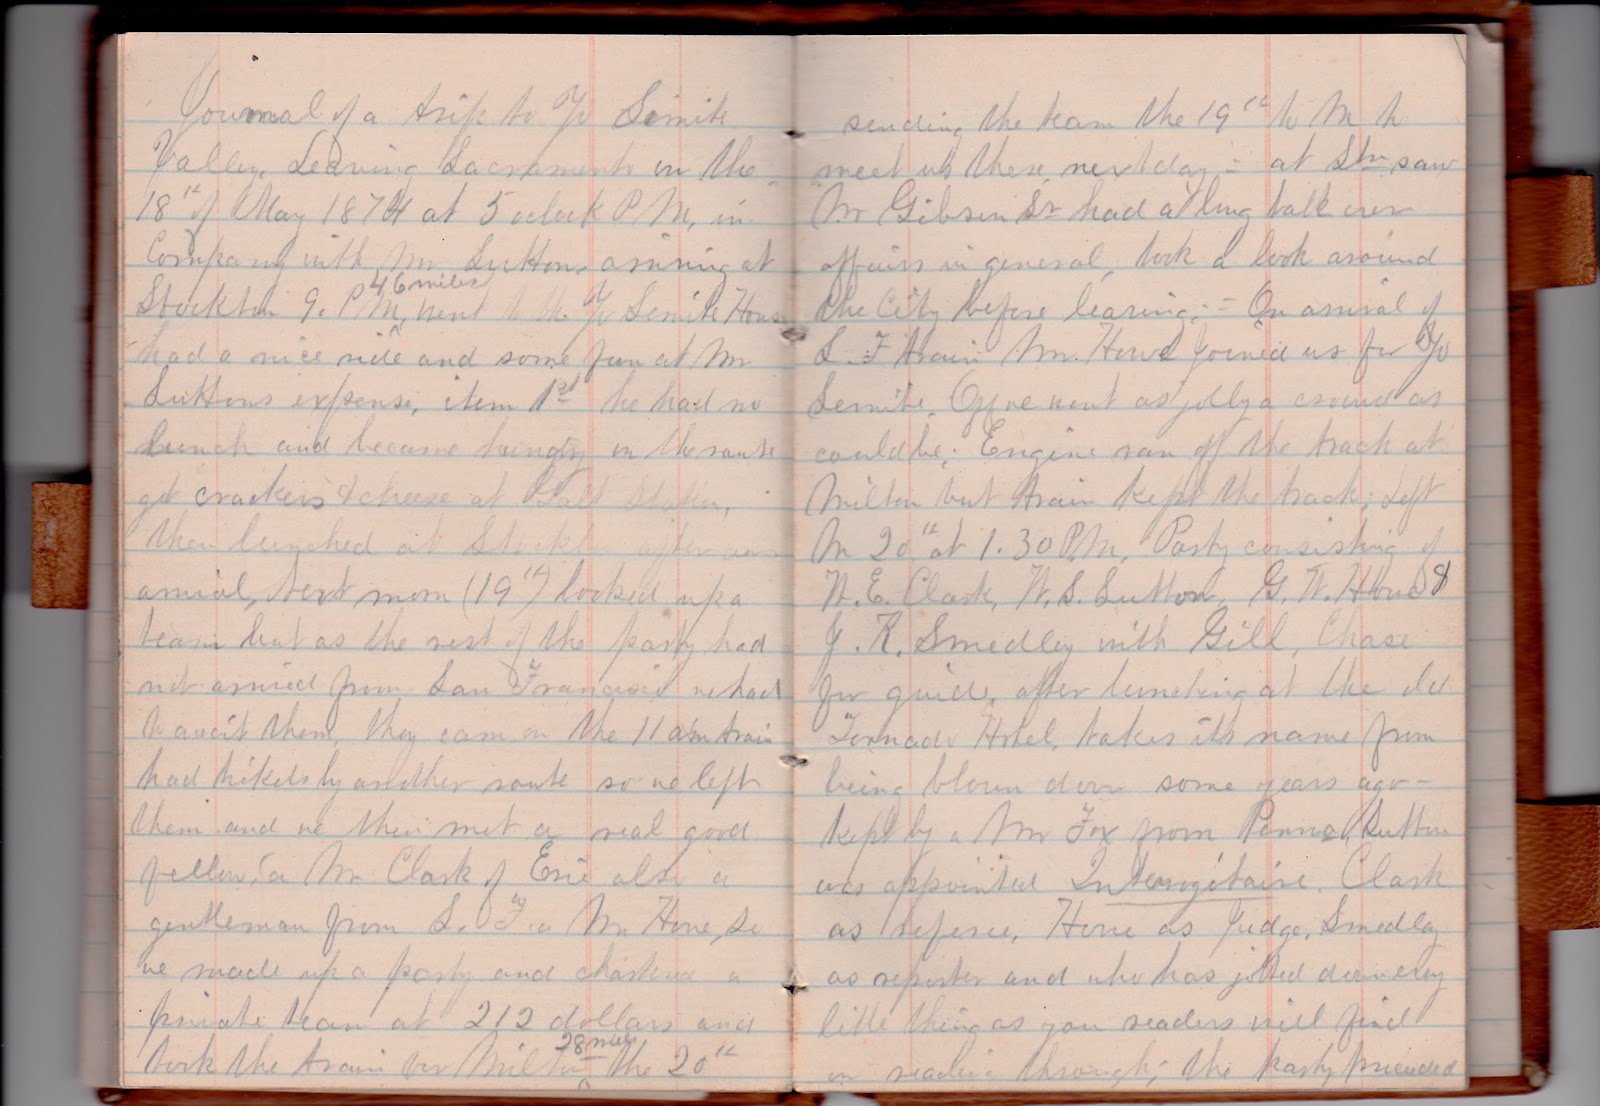 Journal of a trip to Yo Semite
Valley, Leaving Sacramento on the
18th of May 1874 at 5 oclock P M, in
Company with Mr Sutton, arriving at
46 miles
Stockton 9. P M, went to the Yo Semite House
had a nice ride and some fun at Mr
Suttons expense, item 1st he had no
lunch and became hungry on the route
got crackers & cheese at Galt Station,
then lunched at Stockton after our
arrival, Next morn (19th) looked up a
team but as the rest of the party had
not arrived from San Francisco we had
to await them, they cam on the 11 am train
had tickets by another route so we left
them and we then met a real good
fellow, a Mr Clark of Erie also a
gentleman from S. F. a Mr Howe, so
we made up a party and chartered a
private team at 212 dollars and
28 miles
took the train for Milton the 20th
sending the team the 19th to M to
meet us there next day = at Stn saw
Mr Gibson Sr had a long talk over
affairs in general, took a look around
the City before leaving; = On arrival of
S. F train Mr. Howe joined us for Yo
Semite, Off we went as jolly a crowd as
could be; Engine ran off the track at
Milton but train kept the track; Left
M 20th at 1.30 P M, Party consisting of
W. E. Clark, W. S. Sutton, G. W. Howe &
J. K. Smedley with Gill, Chase
for guide, after lunching at the old
Tornado Hotel, takes its name from
being blown down some years ago -
kept by a Mr Fox from Penna, Sutton
was appointed Interrogitaire, Clark
as referee, Howe as Judge, Smedley
as reporter and who has jotted down every
little thing as you readers will find
on reading through; the party proceeded